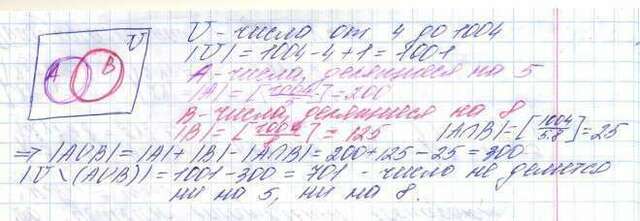 U - числа от 4 до 1004
|U| = 1004 - 4 + 1 = 1001
A - числа, делящиеся на 5
|A| = [1004/5] = 200
B - числа, делящиеся на 8
|B| = [1004/8] = 125 |A∩B| = [1004/5·8] = 25
⇒ |A∪B| = |A| + |B| - |A∩B| = 200 + 125 - 25 = 300
|U \ (A∪B)| = 1001 - 300 = 701 - число не делится
ни на 5, ни на 8.
U
A B